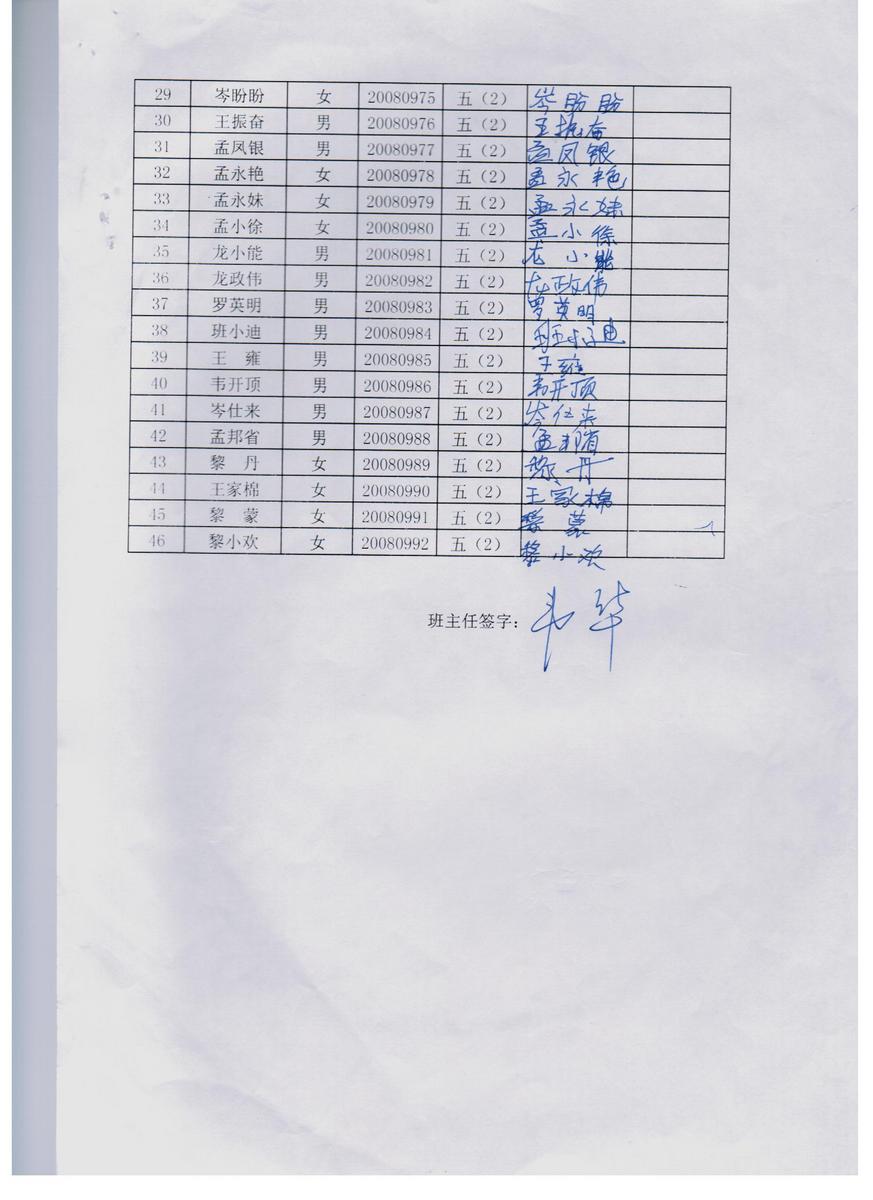 29 岑盼盼 女 20080975 五（2） 岑盼盼
30 王振奋 男 20080976 五（2） 王振奋
31 孟凤银 男 20080977 五（2） 孟凤银
32 孟永艳 女 20080978 五（2） 孟永艳
33 孟永妹 女 20080979 五（2） 孟永妹
34 孟小徐 女 20080980 五（2） 孟小徐
35 龙小能 男 20080981 五（2） 龙小能
36 龙政伟 男 20080982 五（2） 龙政伟
37 罗英明 男 20080983 五（2） 罗英明
38 班小迪 男 20080984 五（2）
39 王 雍 男 20080985 五（2） 王雍
40 韦开顶 男 20080986 五（2） 韦开顶
41 岑仕来 男 20080987 五（2） 岑仕来
42 孟邦省 男 20080988 五（2） 孟邦省
43 黎 丹 女 20080989 五（2） 黎丹
44 王家棉 女 20080990 五（2） 王家棉
45 黎 蒙 女 20080991 五（2） 黎蒙
46 黎小欢 女 20080992 五（2） 黎小欢
班主任签字：韦华